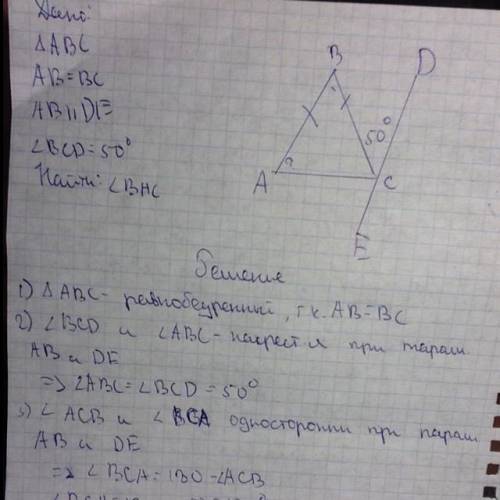 Дано:
ΔABC
AB=BC
AB || DE
∠BCD=50°
Найти: ∠BAC
B
D
50°
A
C
E
Решение
1) ΔABC- равнобедренный, т.к. AB=BC
2) ∠BCD и ∠ABC- накрест л при парал
AB и DE
=> ∠ABC=∠BCD=50°
3) ∠ACB и ∠BCA односторонни при парал
AB и DE
=> ∠BCA=180-∠ACB